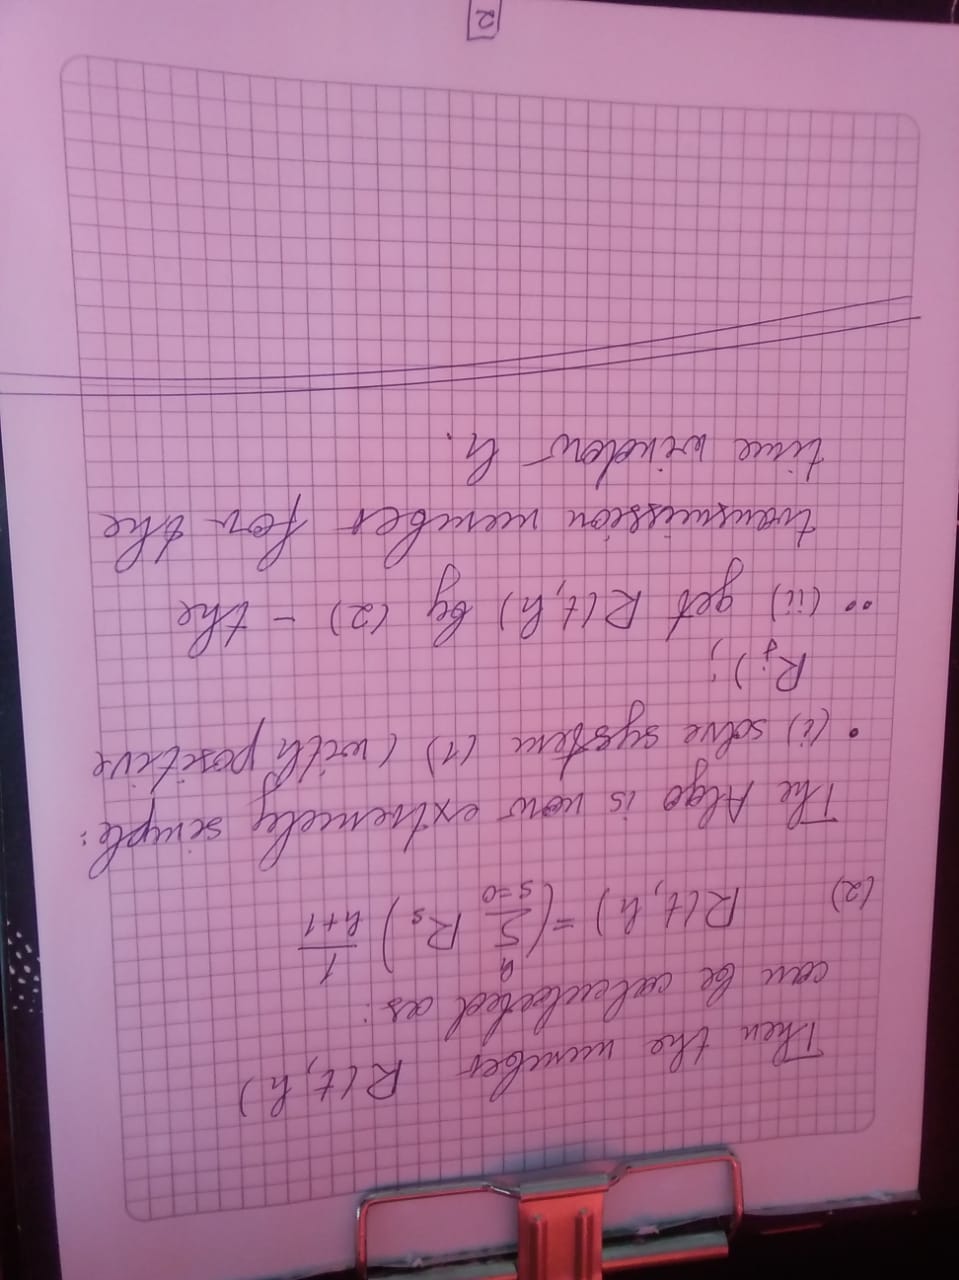 Then the number R(t, h)
can be calculated as:
(2) R(t, h) = (∑_{s=0}^{h} R_s) 1/(h+1)
The Algo is now extremely simple:
• (i) solve system (1) (with positive
R_j);
•• (ii) get R(t, h) by (2) – the
transmission number for the
time window h.
2